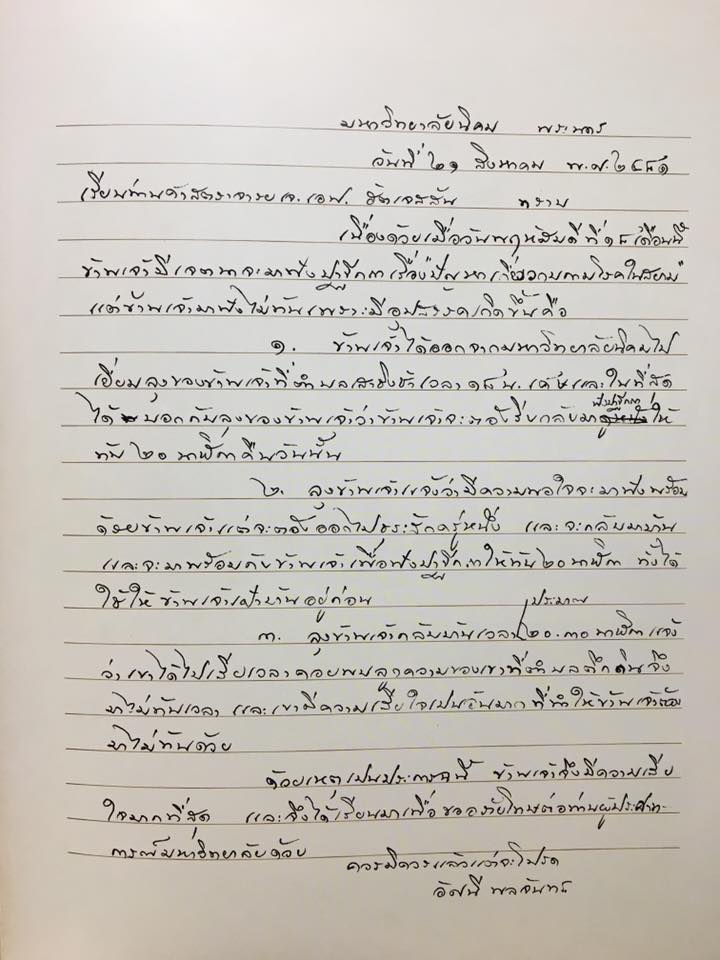 มหาวิทยาลัยนิคม พระนคร
วันที่ ๒๑ สิงหาคม พ.ศ. ๒๔๘๑
เรียนท่านศาสตราจารย์ เจ. เอฟ. ฮัตเจสสัน ทราบ
เนื่องด้วยเมื่อวันพฤหัสบดีที่ ๑๘ เดือนนี้
ข้าพเจ้ามีเจตนาจะมาฟังปาฐกถาเรื่อง "ปัญหาเกี่ยวกามโรคในสยาม"
แต่ข้าพเจ้ามาฟังไม่ทันเพราะมีอุปสรรคเกิดขึ้นคือ
๑. ข้าพเจ้าได้ออกจากมหาวิทยาลัยนิคมไป
เยี่ยมลุงของข้าพเจ้าที่ตำบลเสาชิงช้าเวลา ๑๘ น. เศษและในที่สุด
ได้บอกกับลุงของข้าพเจ้าว่าข้าพเจ้าจะต้องรีบกลับมาฟังปาฐกถาให้
ทัน ๒๐ นาฬิกาคืนวันนั้น
๒. ลุงข้าพเจ้าแจ้งว่ามีความพอใจจะมาฟังพร้อม
ด้วยข้าพเจ้าแต่จะต้องออกไปธุระสักครู่หนึ่ง และจะกลับมาบ้าน
และจะมาพร้อมกับข้าพเจ้าเพื่อฟังปาฐกถาให้ทัน ๒๐ นาฬิกา ทั้งได้
ใช้ให้ข้าพเจ้าเฝ้าบ้านอยู่ก่อน
๓. ลุงข้าพเจ้ากลับบ้านเวลาประมาณ ๒๐.๓๐ นาฬิกา แจ้ง
ว่าเขาได้ไปเสียเวลาคอยพบลูกความของเขาที่ตำบลตึกดินจึง
มาไม่ทันเวลา และเขามีความเสียใจเป็นอันมากที่ทำให้ข้าพเจ้าต้อง
มาไม่ทันด้วย
ด้วยเหตุเป็นประการฉะนี้ ข้าพเจ้าจึงมีความเสีย
ใจมากที่สุด และจึงได้เรียนมาเพื่อขออภัยโทษต่อท่านผู้ประศาท
การณ์มหาวิทยาลัยด้วย
ควรมิควรแล้วแต่จะโปรด
อัศนี พลจันทร